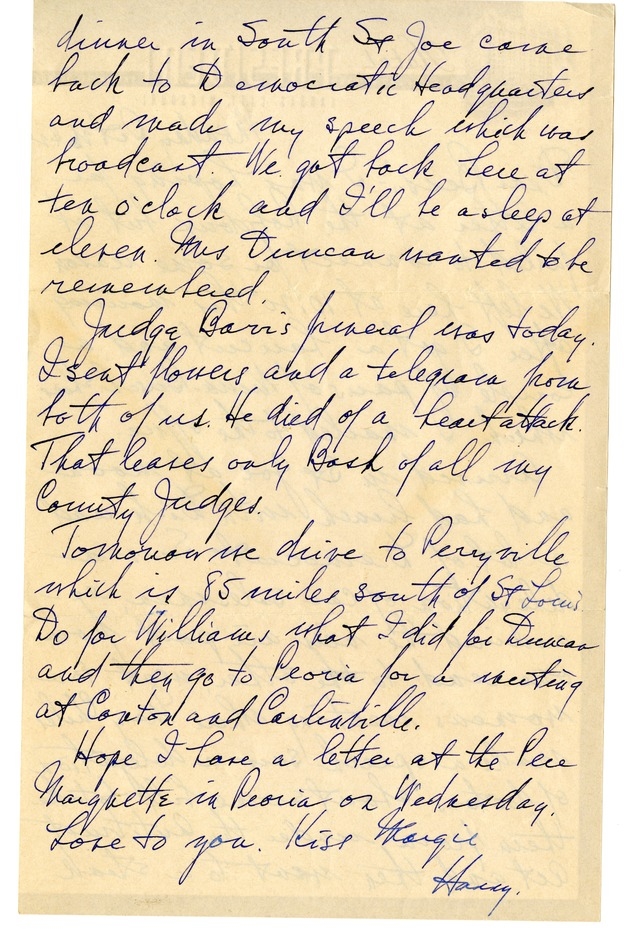 dinner in South St Joe came
back to Democratic Headquarters
and made my speech which was
broadcast. We got back here at
ten o'clock and I'll be asleep at
eleven. Mrs Duncan wanted to be
remembered.
Judge Barr's funeral was today.
I sent flowers and a telegram from
both of us. He died of a heart attack.
That leaves only Bash of all my
County Judges.
Tomorrow we drive to Perryville
which is 85 miles south of St Louis
Do for Williams what I did for Duncan
and then go to Peoria for a meeting
at Canton and Carlinville.
Hope I have a letter at the Pere
Marquette in Peoria on Wednesday.
Love to you. Kiss Margie
Harry.